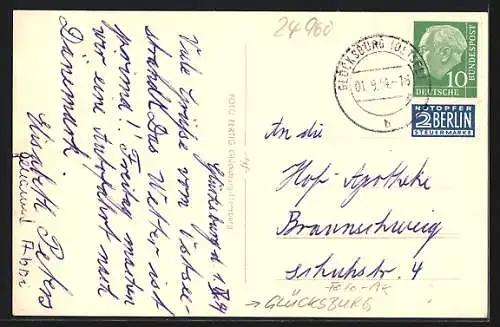 24960
Glücksburg d. 1. IX. 54
Viele Grüße vom Ostsee-
strandt Das Wetter ist
prima! Freitag machen
wir eine Autofahrt nach
Dänemark.
Elisabeth Peters
FOTO FERTIG Glücksburg-Flensburg
GLÜCKSBURG (OSTSEE)
01.9.54.-18
b
10
DEUTSCHE
BUNDESPOST
NOTOPFER
2 BERLIN
STEUERMARKE
An die
Hof-Apotheke
Braunschweig
Schuhstr. 4
Foto-AK
→ GLÜCKSBURG